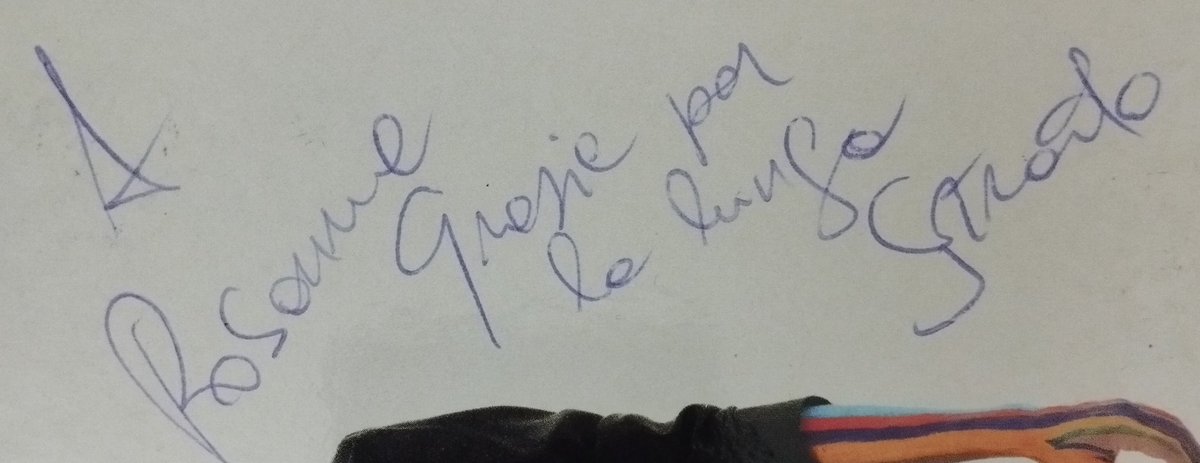 A
Rosanna
Grazie per
la lunga
strada